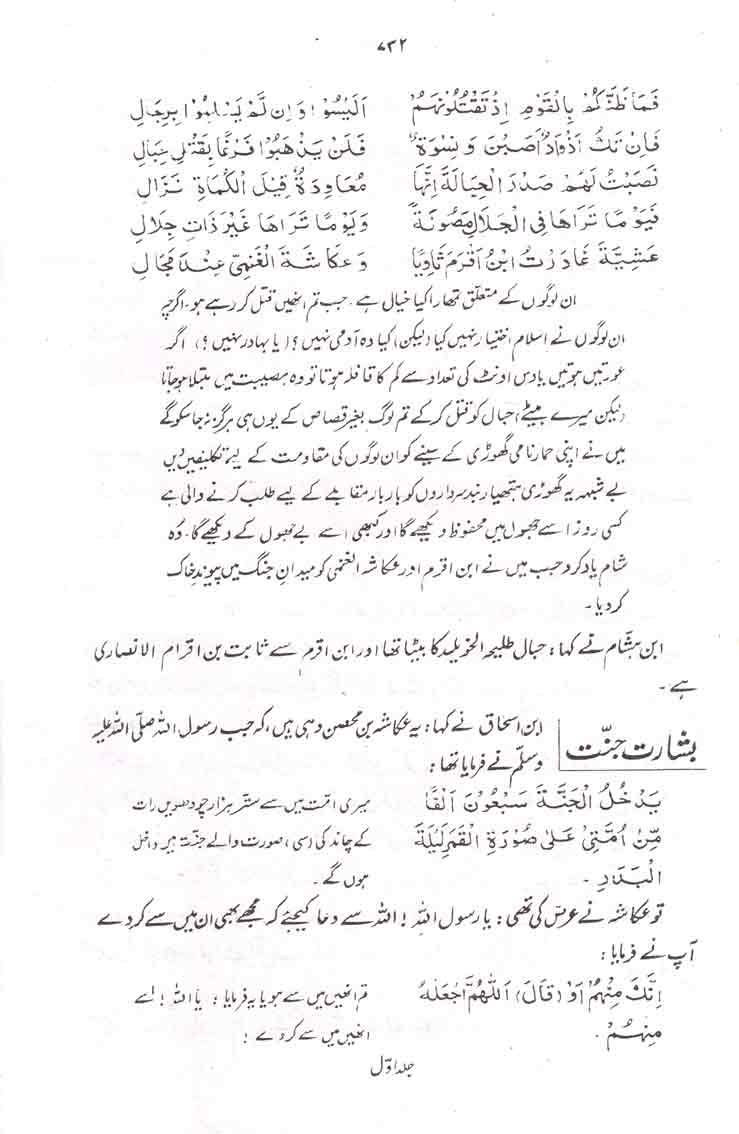 ۷۳۲
فَمَا ظَنُّكُمْ بِالْقَوْمِ اِذْ تَقْتُلُوْنَهُمْ اَلَيْسُوْا وَاِنْ لَّمْ يُسْلِمُوْا بِرِجَالِ
فَاِنْ تَكُ اَذْوَادٌ اُصِبْنَ وَنِسْوَةٌ فَلَنْ يَذْهَبُوْا فَرْغًا بِقَتْلِ حِبَالِ
نَصَبْتُ لَهُمْ صَدْرَ الْحِمَالَةِ اِنَّهَا مُعَاوِدَةٌ قِيْلَ الْكُمَاةِ نَزَالِ
فَيَوْمًا تَرَاهَا فِى الْجَلَالِ مَصُوْنَةً وَيَوْمًا تَرَاهَا غَيْرَ ذَاتِ جِلَالِ
عَشِيَّةَ غَادَرْتُ ابْنَ اَقْرَمَ ثَاوِيًا وَعُكَاشَةَ الْغَنْمِيَّ عِنْدَ مَجَالِ
ان لوگوں کے متعلق تمھارا کیا خیال ہے۔ جب تم انھیں قتل کر رہے ہو۔ اگرچہ
ان لوگوں نے اسلام اختیار نہیں کیا (لیکن) کیا وہ آدمی نہیں؟ (یا بہادر نہیں؟) اگر
عورتیں ہوتیں یا دس اونٹ کی تعداد سے کم کا قافلہ ہوتا تو وہ مصیبت میں مبتلا ہو جاتا
لیکن میرے بیٹے احبال کو قتل کر کے تم لوگ بغیر قصاص کے یوں ہی ہرگز نہ جا سکو گے
میں نے اپنی حمار نامی گھوڑی کے سینے کو ان لوگوں کی مقاومت کے لیے تکلیفیں دیں
بے شبہہ یہ گھوڑی ہتھیار بند سرداروں کو بار بار مقابلے کے لیے طلب کرنے والی ہے
کسی روز اسے جھول میں محفوظ دیکھے گا اور کبھی اسے بے جھول کے دیکھے گا۔ وُہ
شام یاد کرو جب میں نے ابن اقرم اور عکاشہ الغنمی کو میدانِ جنگ میں پیوند خاک
کر دیا۔
ابن ہشام نے کہا: حبال طلیحہ الخویلید کا بیٹا تھا اور ابن اقرم سے ثابت بن اقرام الانصاری
ہے۔
بشارت جنّت
ابن اسحاق نے کہا: یہ عکاشہ بن محصن وہی ہیں، کہ جب رسول اللہ صلّی اللہ علیہ
وسلّم نے فرمایا تھا:
يَدْخُلُ الْجَنَّةَ سَبْعُوْنَ اَلْفًا میری امت میں سے ستر ہزار چودھویں رات
مِّنْ اُمَّتِىْ عَلٰى صُوْرَةِ الْقَمَرِ لَيْلَةَ کے چاند کی (سی) صورت والے جنت میں داخل
الْبَدْرِ۔ ہوں گے۔
تو عکاشہ نے عرض کی تھی: یا رسول اللہ! اللہ سے دعا کیجئے کہ مجھے بھی ان میں سے کر دے
آپ نے فرمایا:
اِنَّكَ مِنْهُمْ اَوْ (قَالَ) اَللّٰهُمَّ اجْعَلْهُ تم انھیں میں سے ہو یا یہ فرمایا: یا اللہ! اسے
مِنْهُمْ۔ انھیں میں سے کر دے!
جلد اوّل